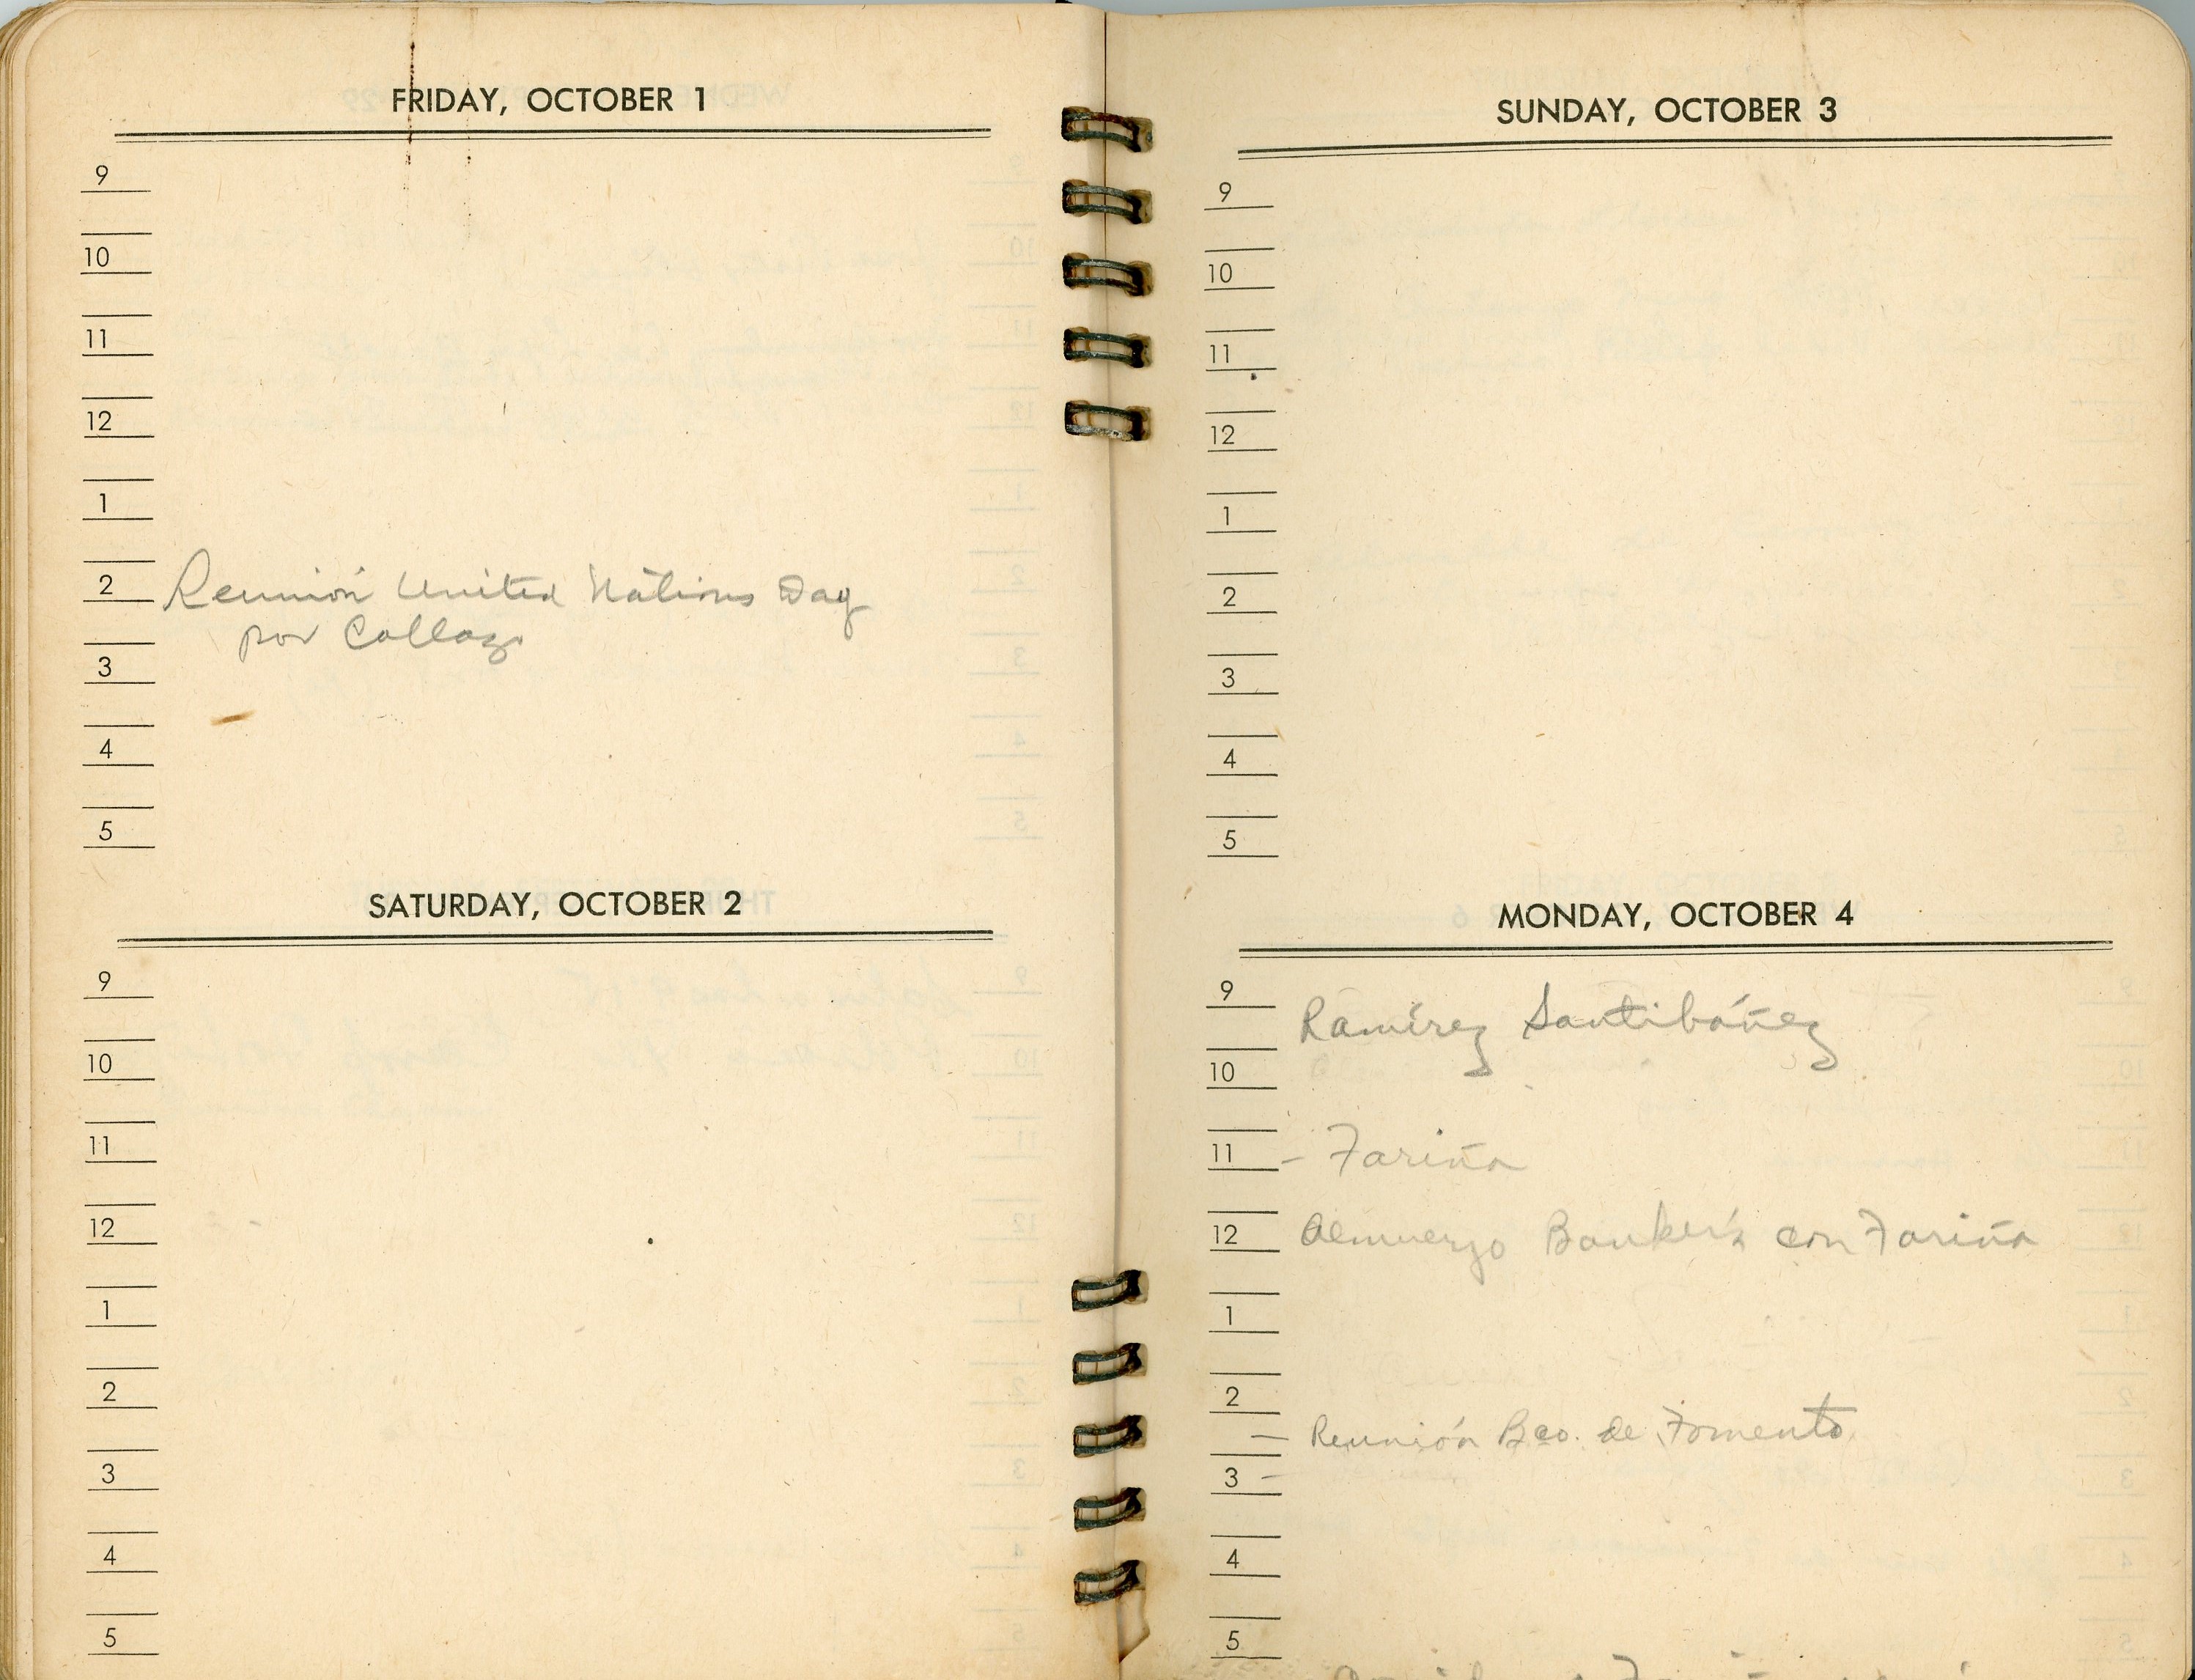 FRIDAY, OCTOBER 1
9
10
11
12
1
2 Reunión United Nations Day
por Collazo
3
4
5
SATURDAY, OCTOBER 2
9
10
11
12
1
2
3
4
5
SUNDAY, OCTOBER 3
9
10
11
12
1
2
3
4
5
MONDAY, OCTOBER 4
9 Ramírez Santibáñez
10
11 - Fariña
12 Almuerzo Banker's con Fariña
1
2
- Reunión Bco. de Fomento
3 -
4
5